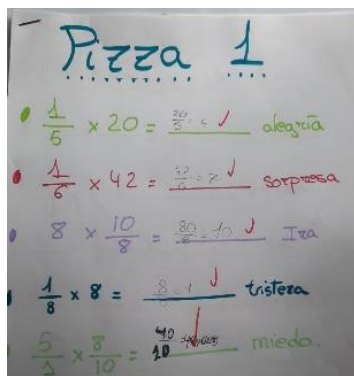 Pizza 1
1/5 × 20 = 20/5 = 4 alegría
1/6 × 42 = 42/6 = 7 sorpresa
8 × 10/8 = 80/8 = 10 Ira
1/8 × 8 = 8/8 = 1 tristeza
5/1 × 8/10 = 40/10 miedo.